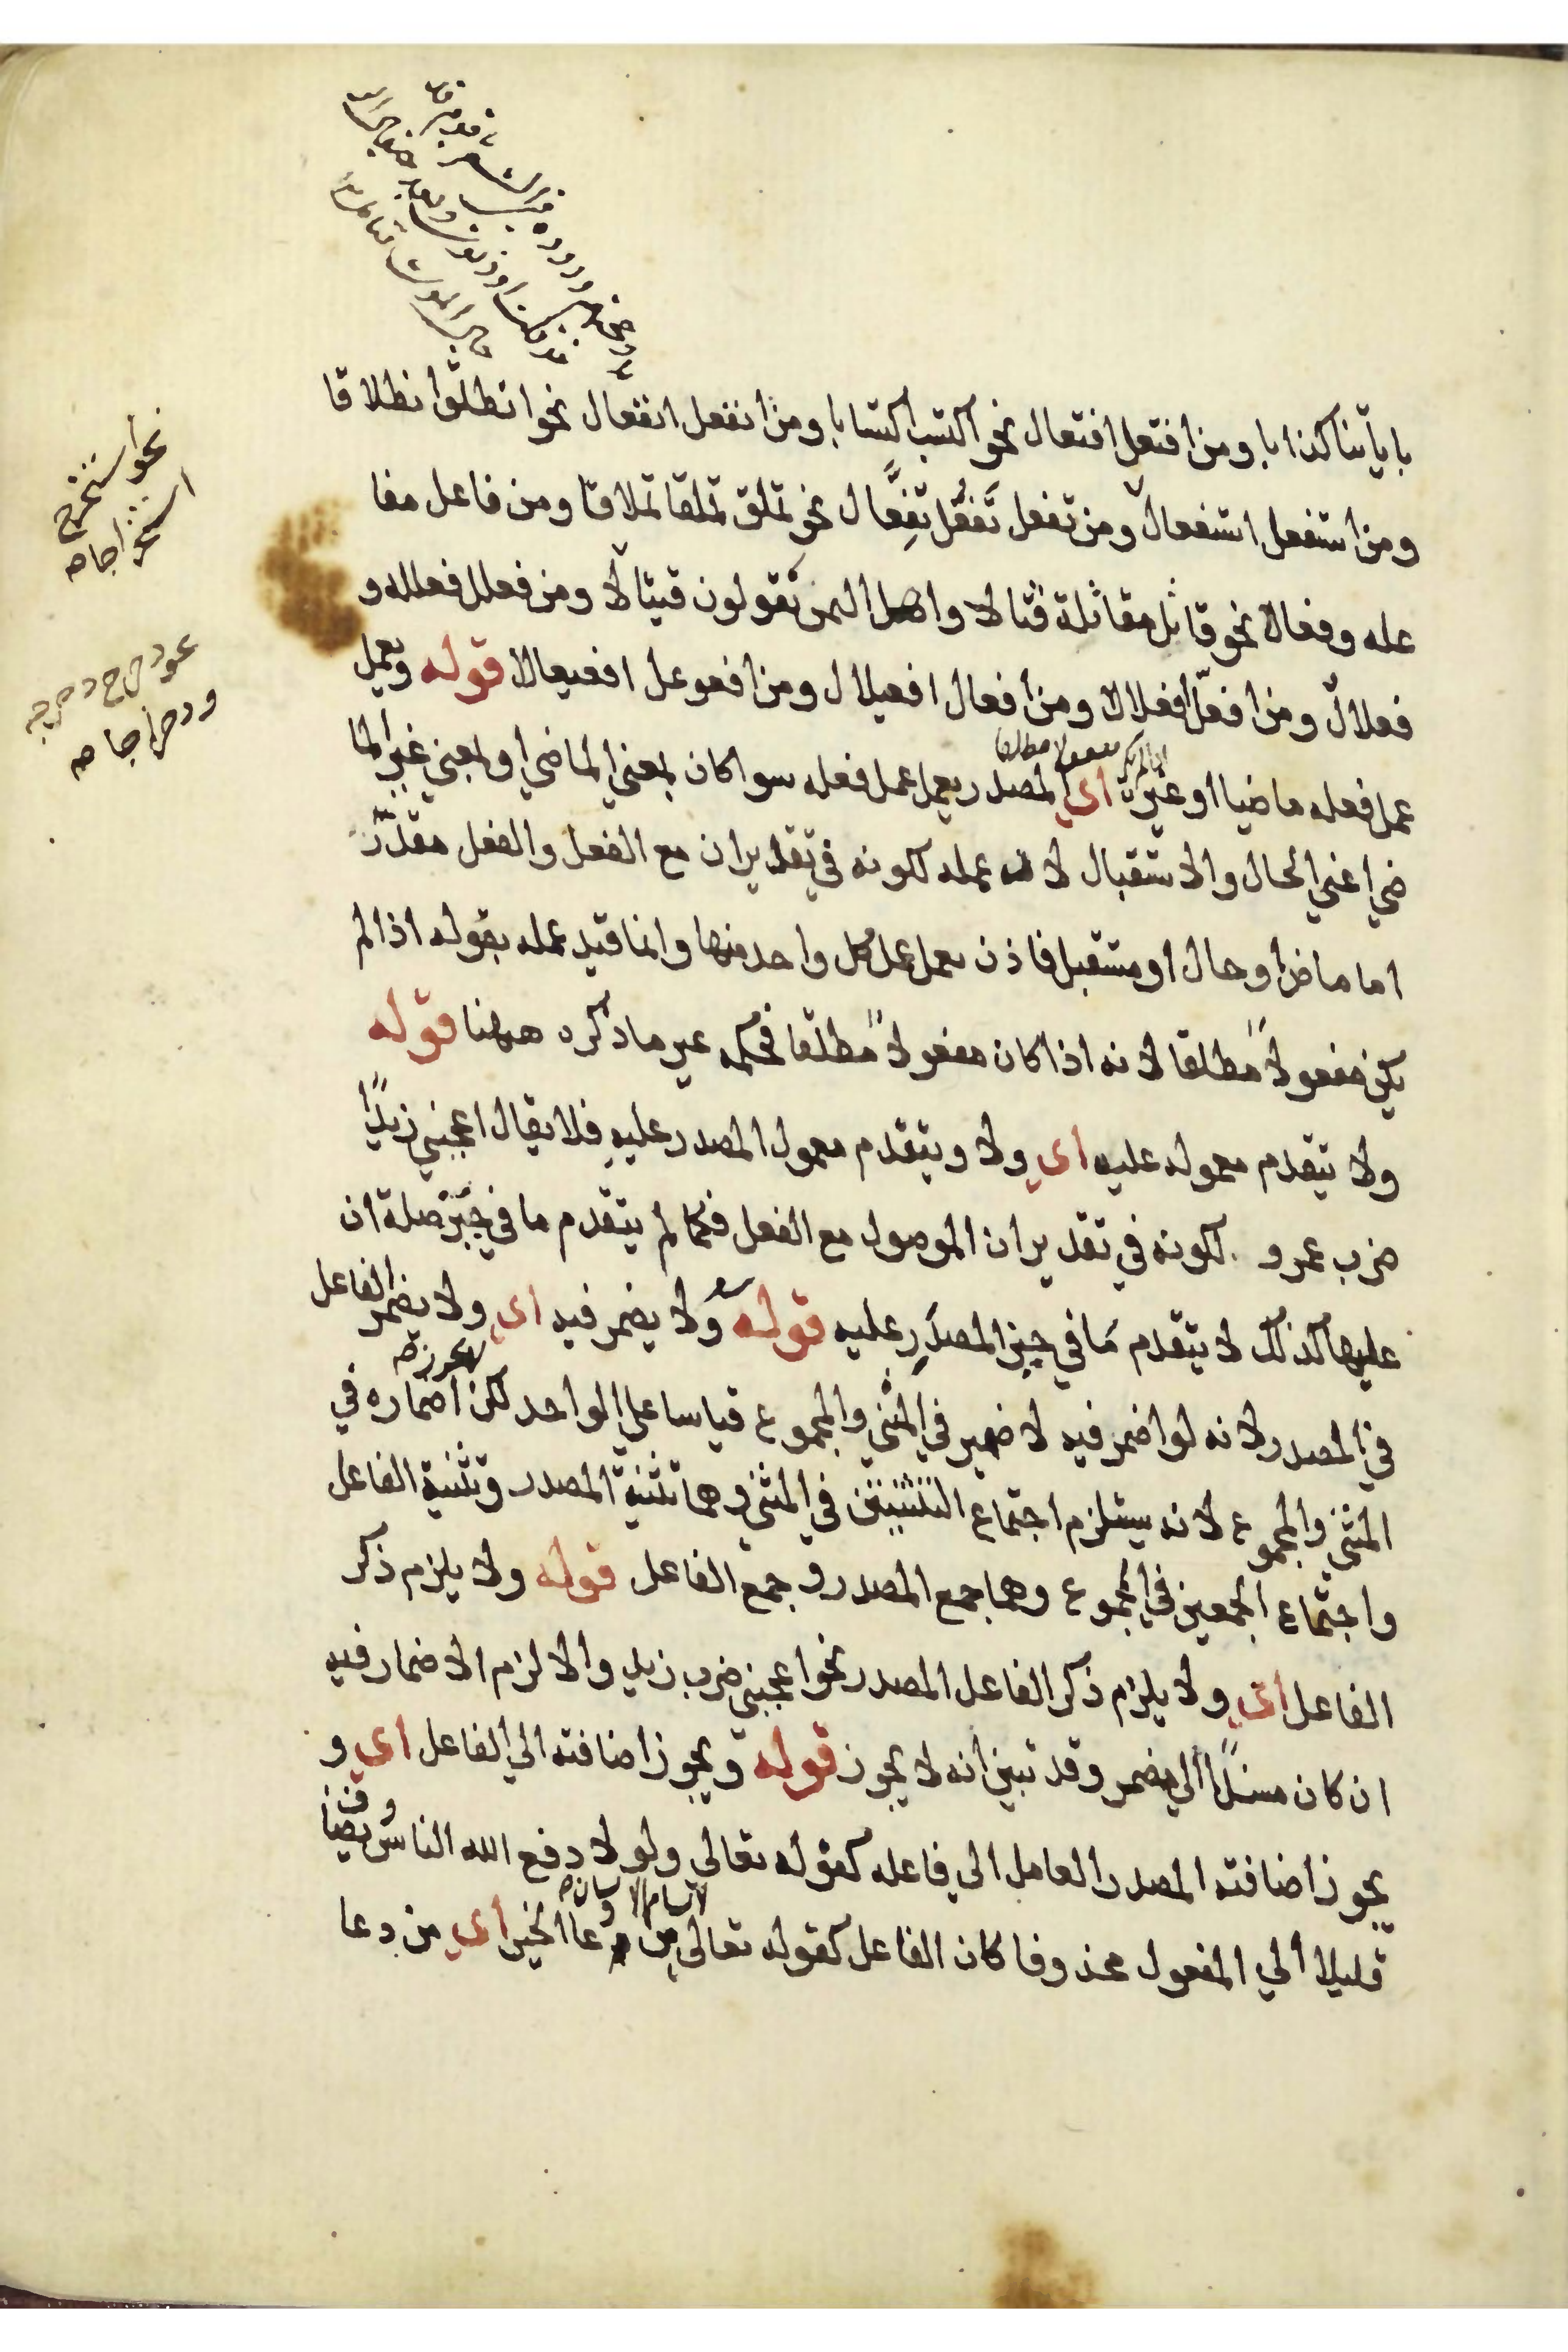 باياتنا كذابا ومن افتعل افتعال نحو اكتسب اكتسابا ومن انفعل انفعال نحو انطلق انطلاقا
ومن استفعل استفعال ومن تفعل تَفَعُّل تِفِعَّال نحو تملق تملقا تملاقا ومن فاعل مفا
علة وفعالا نحو قاتل مقاتلة قتالا واهل اليمن يقولون قيتالا ومن فعلل فعللة و
فعلال ومن افعلّ افعلالا ومن افعال افعيلال ومن افعوعل افعيعالا قوله ويعمل
اذا لم يكن مفعولا مطلقا
عمل فعله ماضيا او غيره اي المصدر يعمل عمل فعله سوا كان بمعني الماضي او بمعني غير الما
ضي اعني الحال والاستقبال لان عمله لكونه في تقدير ان مع الفعل والفعل مقدر
اما ماض او حال او مستقبل فاذن يعمل عمل كل واحد منها وانما قيد عمله بقوله اذا لم
يكن مفعولاً مطلقا لانه اذا كان مفعولاً مطلقا فحكمه غير ما ذكره ههنا قوله
ولا يتقدم معموله عليه اي ولا ويتقدم معمول المصدر عليه فلا يقال اعجبني زيدًا
ضرب عمرو لكونه في تقدير ان الموصول مع الفعل فكما لم يتقدم ما في حيز صلة ان
عليها كذلك لا يتقدم ما في حيز المصدر عليه قوله ولا يضمر فيه اي ولا يضمر الفاعل
في المصدر لانه لو اضمر فيه لاضمر في المثني والمجموع قياسا علي الواحد لكن اضماره في
لا يجوز صح
المثني والمجموع لانه يستلزم اجتماع التثنيتين في المثني وهما تثنية المصدر وتثنية الفاعل
واجتماع الجمعين في المجموع وهما جمع المصدر وجمع الفاعل قوله ولا يلزم ذكر
الفاعل اي ولا يلزم ذكر الفاعل المصدر نحو اعجبني ضرب زيد والا لزم الاضمار فيه
ان كان مسندًا الي مضمر وقد تبين انه لا يجوز قوله ويجوز اضافته الي الفاعل اي و
يجوز اضافته المصدر العامل الي فاعله كقوله تعالي ولولا دفع الله الناس يضا
وقد
قليلا الي المفعول محذوفا كان الفاعل كقوله تعالي من دعا الخير اي من دعا
لا يسام الانسان
نحو استخرج
استخراجا صح
نحو دحرج دحرجه
ودحراجا صح